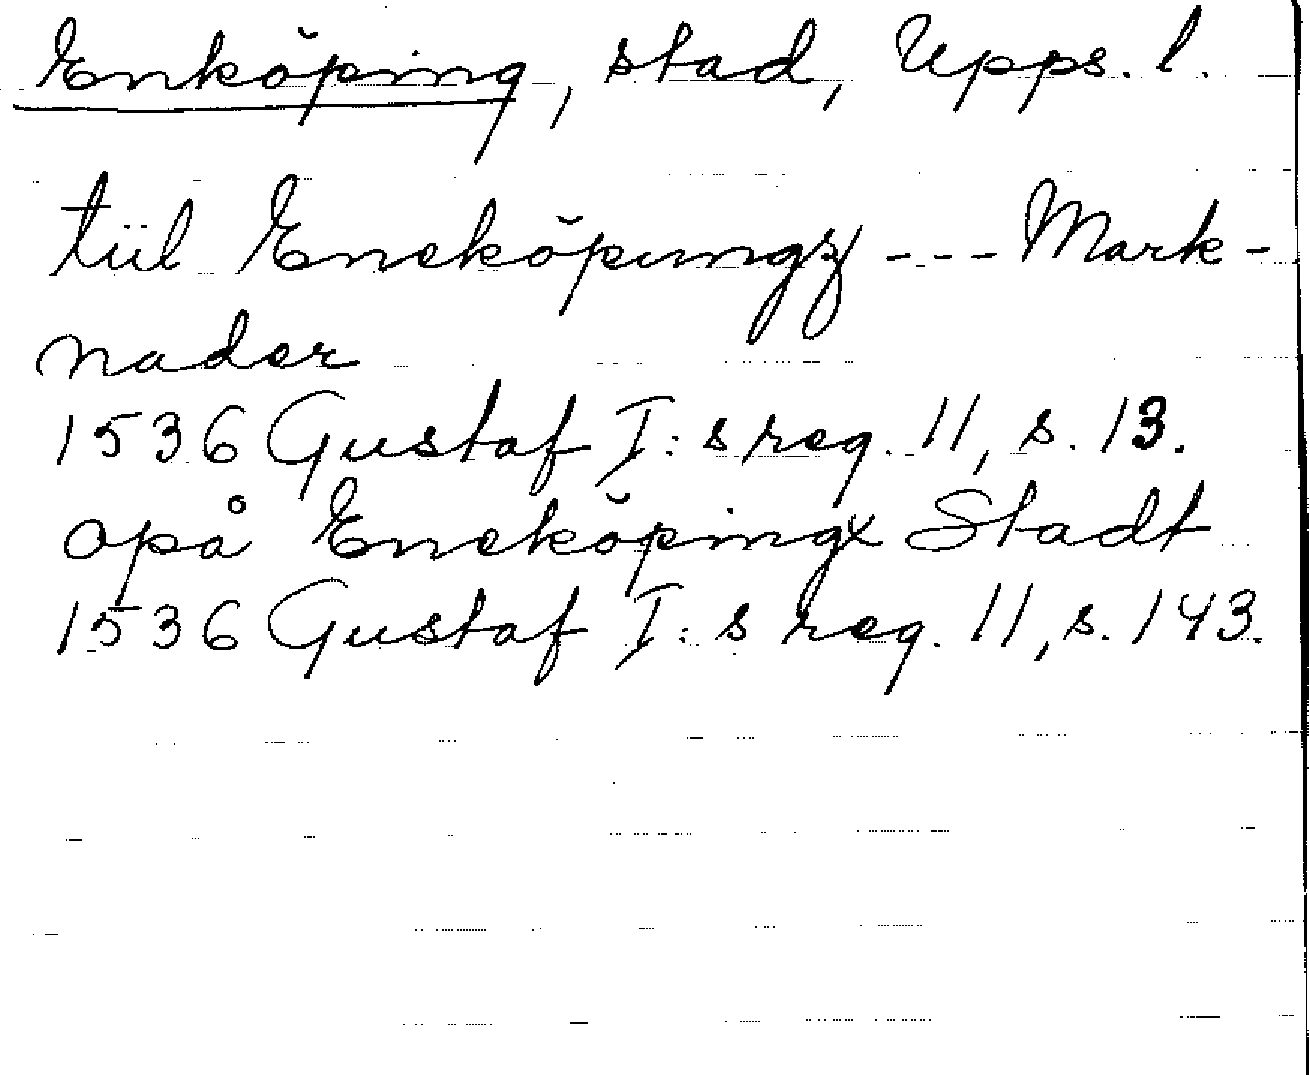 Enköping, stad, Upps. l.
tiil Eneköpungz --- Mark-
nader
1536 Gustaf I:s reg. 11, s. 13.
opå Eneköpingx Stadt
1536 Gustaf I:s reg. 11, s. 143.